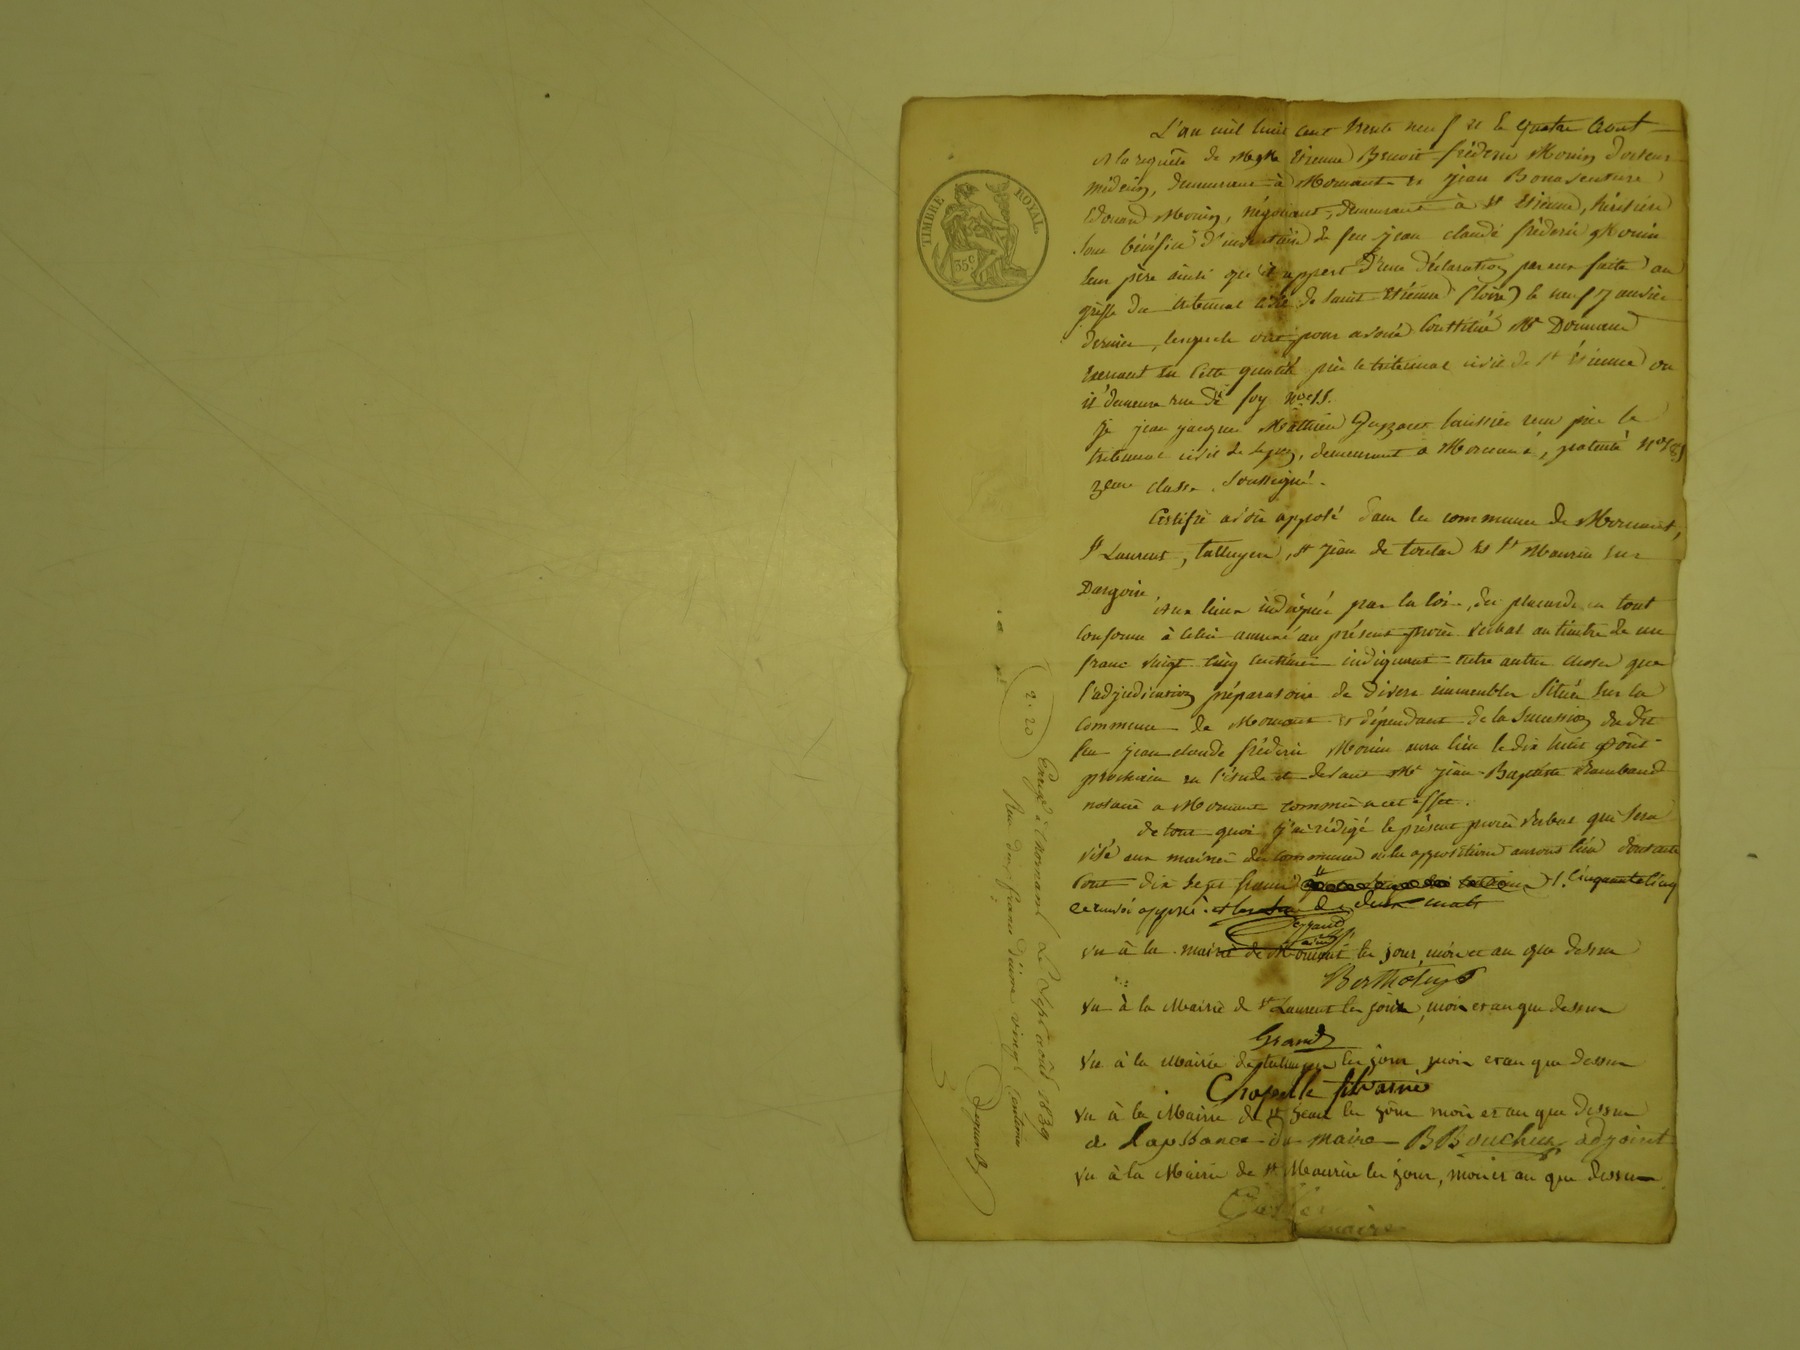 TIMBRE ROYAL
35c
L'an mil huit cent trente neuf et le quatre Aout
A la requête de MMrs Etienne Benoit frédéric Morin Docteur
médecin, demeurant à Mornant et Jean Bonaventure
Edouard Morin, négociant, demeurant à St Etienne, héritiers
sous bénéfice d'inventaire de feu Jean Claude frédéric Morin
leur père ainsi qu'il appert d'une déclaration par eux faite au
greffe du tribunal civil de Saint Etienne (Loire) le neuf Janvier
dernier, lesquels ont pour avoué constitué Me
Exerçant en cette qualité près le tribunal civil de St Etienne ou
il demeure rue de foy No 15.
Je jean jacques Mathieu huissier reçu près le
tribunal civil de Lyon, demeurant à Mornant, patenté No
3eme classe, Soussigné.
Certifie avoir apposé dans les communes de Mornant,
St Laurent, taluyers, St Jean de toulas et St Maurice sur
Dargoire
Aux lieux indiqués par la loi, des placards en tout
conforme à celui annexé au présent procès verbal au timbre de un
franc vingt cinq centimes indiquant entre autres choses que
l'adjudication préparatoire de divers immeubles situés sur la
commune de Mornant et dépendant de la succession du dit
feu jean claude frédéric Morin aura lieu le dix huit Août
prochain en l'étude et devant Me Jean-Baptiste
notaire à Mornant commis à cet effet.
de tout quoi j'ai rédigé le présent procès verbal qui sera
visé aux mairies des communes ou les appositions auront lieu dont acte
Cout dix sept francs cinquante cinq
Vu à la mairie de Mornant les jour, mois et an que dessus
Vu à la Mairie de St Laurent les jour, mois et an que dessus
Grand
Vu à la Mairie de taluyers les jour mois et an que dessus
Chapelle
Vu à la Mairie de St Jean les jour mois et an que dessus
de l'apsance du maire B Bouchut adjoint
Vu à la Mairie de St Maurice les jour, mois et an que dessus
maire
2. 20
Enregé à Mornant Le Sept août 1839
Reçu deux francs dixième vingt centimes